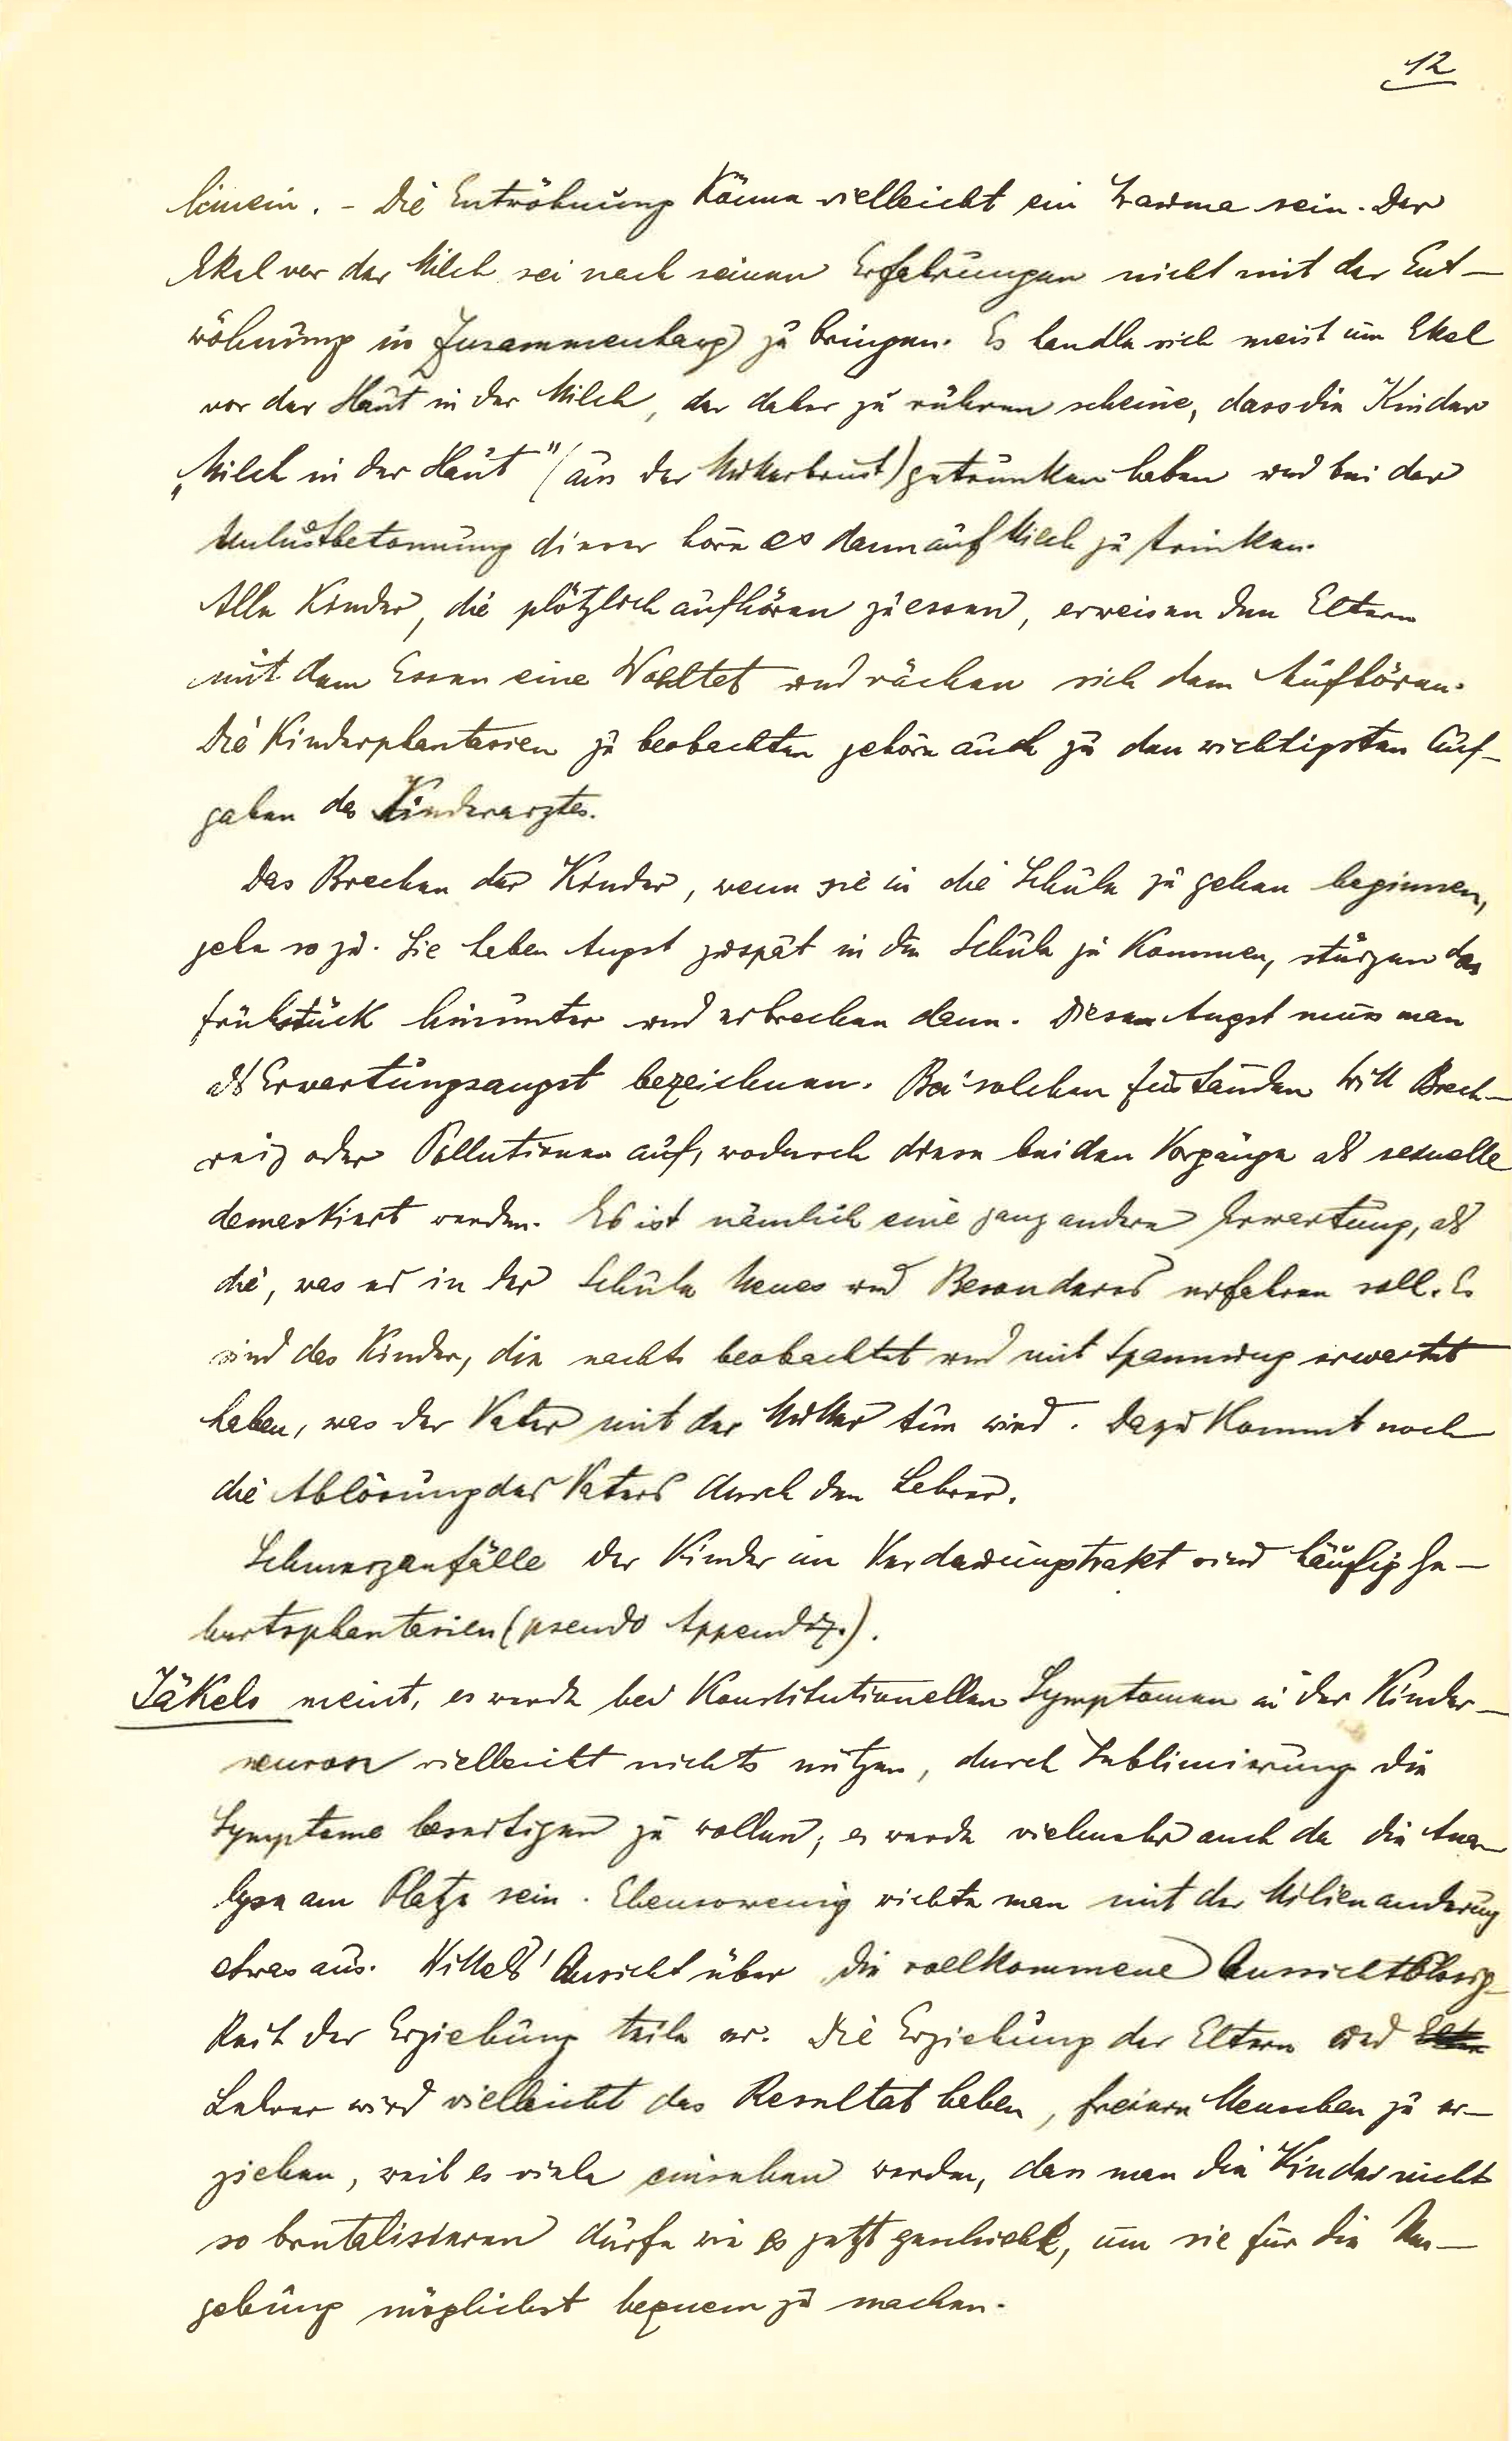 12
hinein. - Die Entwöhnung könne vielleicht ein Trauma sein. Der
Ekel vor der Milch sei nach seinen Erfahrungen nicht mit der Ent-
wöhnung in Zusammenhang zu bringen. Es handle sich meist um Ekel
vor der Haut in der Milch, der daher zu rühren scheine, dass die Kinder
„Milch in der Haut" (aus der Mutterbrust) getrunken haben und bei der
Unlustbetonung dieser höre es dann auf Milch zu trinken.
Alle Kinder, die plötzlich aufhören zu essen, erweisen den Eltern
mit dem Essen eine Wohltat und rächen sich dem Aufhören.
Die Kinderphantasien zu beobachten gehöre auch zu den wichtigsten Auf-
gaben des Kinderarztes.
Das Brechen der Kinder, wenn sie in die Schule zu gehen beginnen,
gehe so zu. Sie haben Angst zu spät in die Schule zu kommen, stürzen das
Frühstück hinunter und erbrechen dann. Diese Angst muss man
als Erwartungsangst bezeichnen. Bei solchen Zuständen tritt Brech-
reiz oder Pollutionen auf, wodurch diese beiden Vorgänge als sexuelle
demaskiert werden. Es ist nämlich eine ganz andere Erwartung, als
die, was er in der Schule Neues und Besonderes erfahren soll. Es
sind das Kinder, die nachts beobachtet und mit Spannung erwartet
haben, was der Vater mit der Mutter tun wird. Dazu kommt noch
die Ablösung des Vaters durch den Lehrer.
Schmerzanfälle der Kinder im Verdauungstrakt sind häufig Ge-
burtsphantasien (pseudo Appendiz.).
Jäkels meint, es werde bei konstitutionellen Symptomen in der Kinder-
neurose vielleicht nichts nützen, durch Sublimierung die
Symptome beseitigen zu wollen; es werde vielmehr auch da die Ana-
lyse am Platze sein. Ebensowenig richte man mit der Milieuanderung
etwas aus. Wittels' Ansicht über die vollkommene Aussichtslosig-
keit der Erziehung teile er. Die Erziehung der Eltern und
Lehrer wird vielleicht das Resultat haben, freiere Menschen zu er-
ziehen, weil es viele einsehen werden, dass man die Kinder nicht
so brutalisieren dürfe wie es jetzt geschieht, um sie für die Um-
gebung möglichst bequem zu machen.